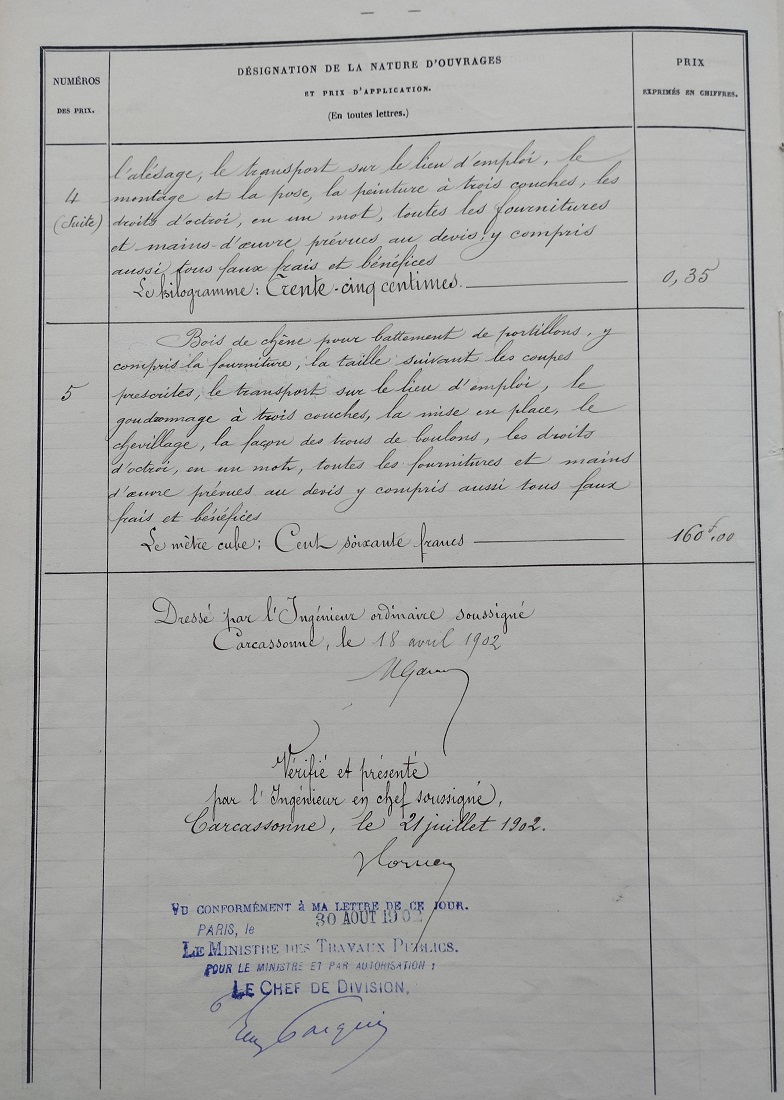 NUMÉROS
DES PRIX.
DÉSIGNATION DE LA NATURE D'OUVRAGES
ET PRIX D'APPLICATION.
(En toutes lettres.)
PRIX
EXPRIMÉS EN CHIFFRES.
4
(Suite)
l'alésage, le transport sur le lieu d'emploi, le
montage et la pose, la peinture à trois couches, les
droits d'octroi, en un mot, toutes les fournitures
et mains-d'œuvre prévues au devis, y compris
aussi tous faux frais et bénéfices
Le kilogramme: Trente-cinq centimes.
0,35
5
Bois de chêne pour battement de portillons, y
compris la fourniture, la taille suivant les coupes
prescrites, le transport sur le lieu d'emploi, le
goudronnage à trois couches, la mise en place, le
chevillage, la façon des trous de boulons, les droits
d'octroi, en un mot, toutes les fournitures et mains
d'œuvre prévues au devis y compris aussi tous faux
frais et bénéfices
Le mètre cube: Cent soixante francs
160f,00
Dressé par l'Ingénieur ordinaire soussigné
Carcassonne, le 18 avril 1902
Vérifié et présenté
par l'Ingénieur en chef soussigné,
Carcassonne, le 21 juillet 1902.
VU CONFORMÉMENT à MA LETTRE DE CE JOUR.
PARIS, le 30 AOUT 1902
LE MINISTRE DES TRAVAUX PUBLICS.
POUR LE MINISTRE ET PAR AUTORISATION :
LE CHEF DE DIVISION,